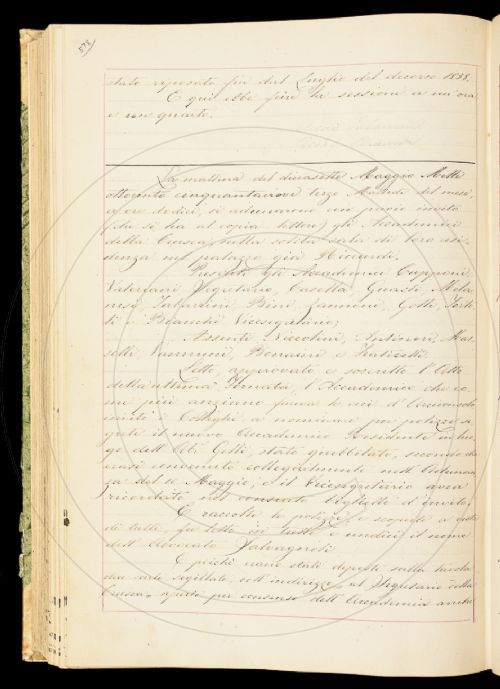 578
stato riposato fin dal Luglio del decorso 1858.
E qui ebbe fine la sessione a un'ora
e un quarto.
La mattina del diciassette Maggio Mille
ottocento cinquantanove terzo Martedì del mese,
a ore dodici, si adunarono con previo invito
(che si ha al copia lettere) gli Accademici
della Crusca nella solita sala di loro resi-
denza nel palazzo già Riccardi.
Presenti gli Accademici Capponi,
Valeriani Segretario, Casella, Guasti, Mila-
nesi, Tabarrini, Bini, Zannoni, Gotti, Torto-
li e Bianchi Vicesegretario;
Assenti Niccolini, Antinori, Mas-
selli, Vannucci, Bonaini e
Letto, approvato e soscritto l'Atto
della ultima Tornata, l'Accademico che co-
me più anziano faceva le veci d'Arciconsolo
invitò i Colleghi a nominare per polizze se-
grete il nuovo Accademico Residente in luo-
go dell' Ab. Gelli, stato giubbilato, secondo che
erasi convenuto collegialmente nell' Adunan-
za del Maggio; e il Vicesegretario avea
ricordato nei consueti biglietti d'invito.
E raccolte le polizze e scoperte a vista
di tutti, fu letto in tutte e undici il nome
dell' Avvocato Salvagnoli.
E poichè erano stati deposti sulla tavola
due carte sigillate, coll' indirizzo al Segretario della
Crusca, aperte per consenso dell' Accademia